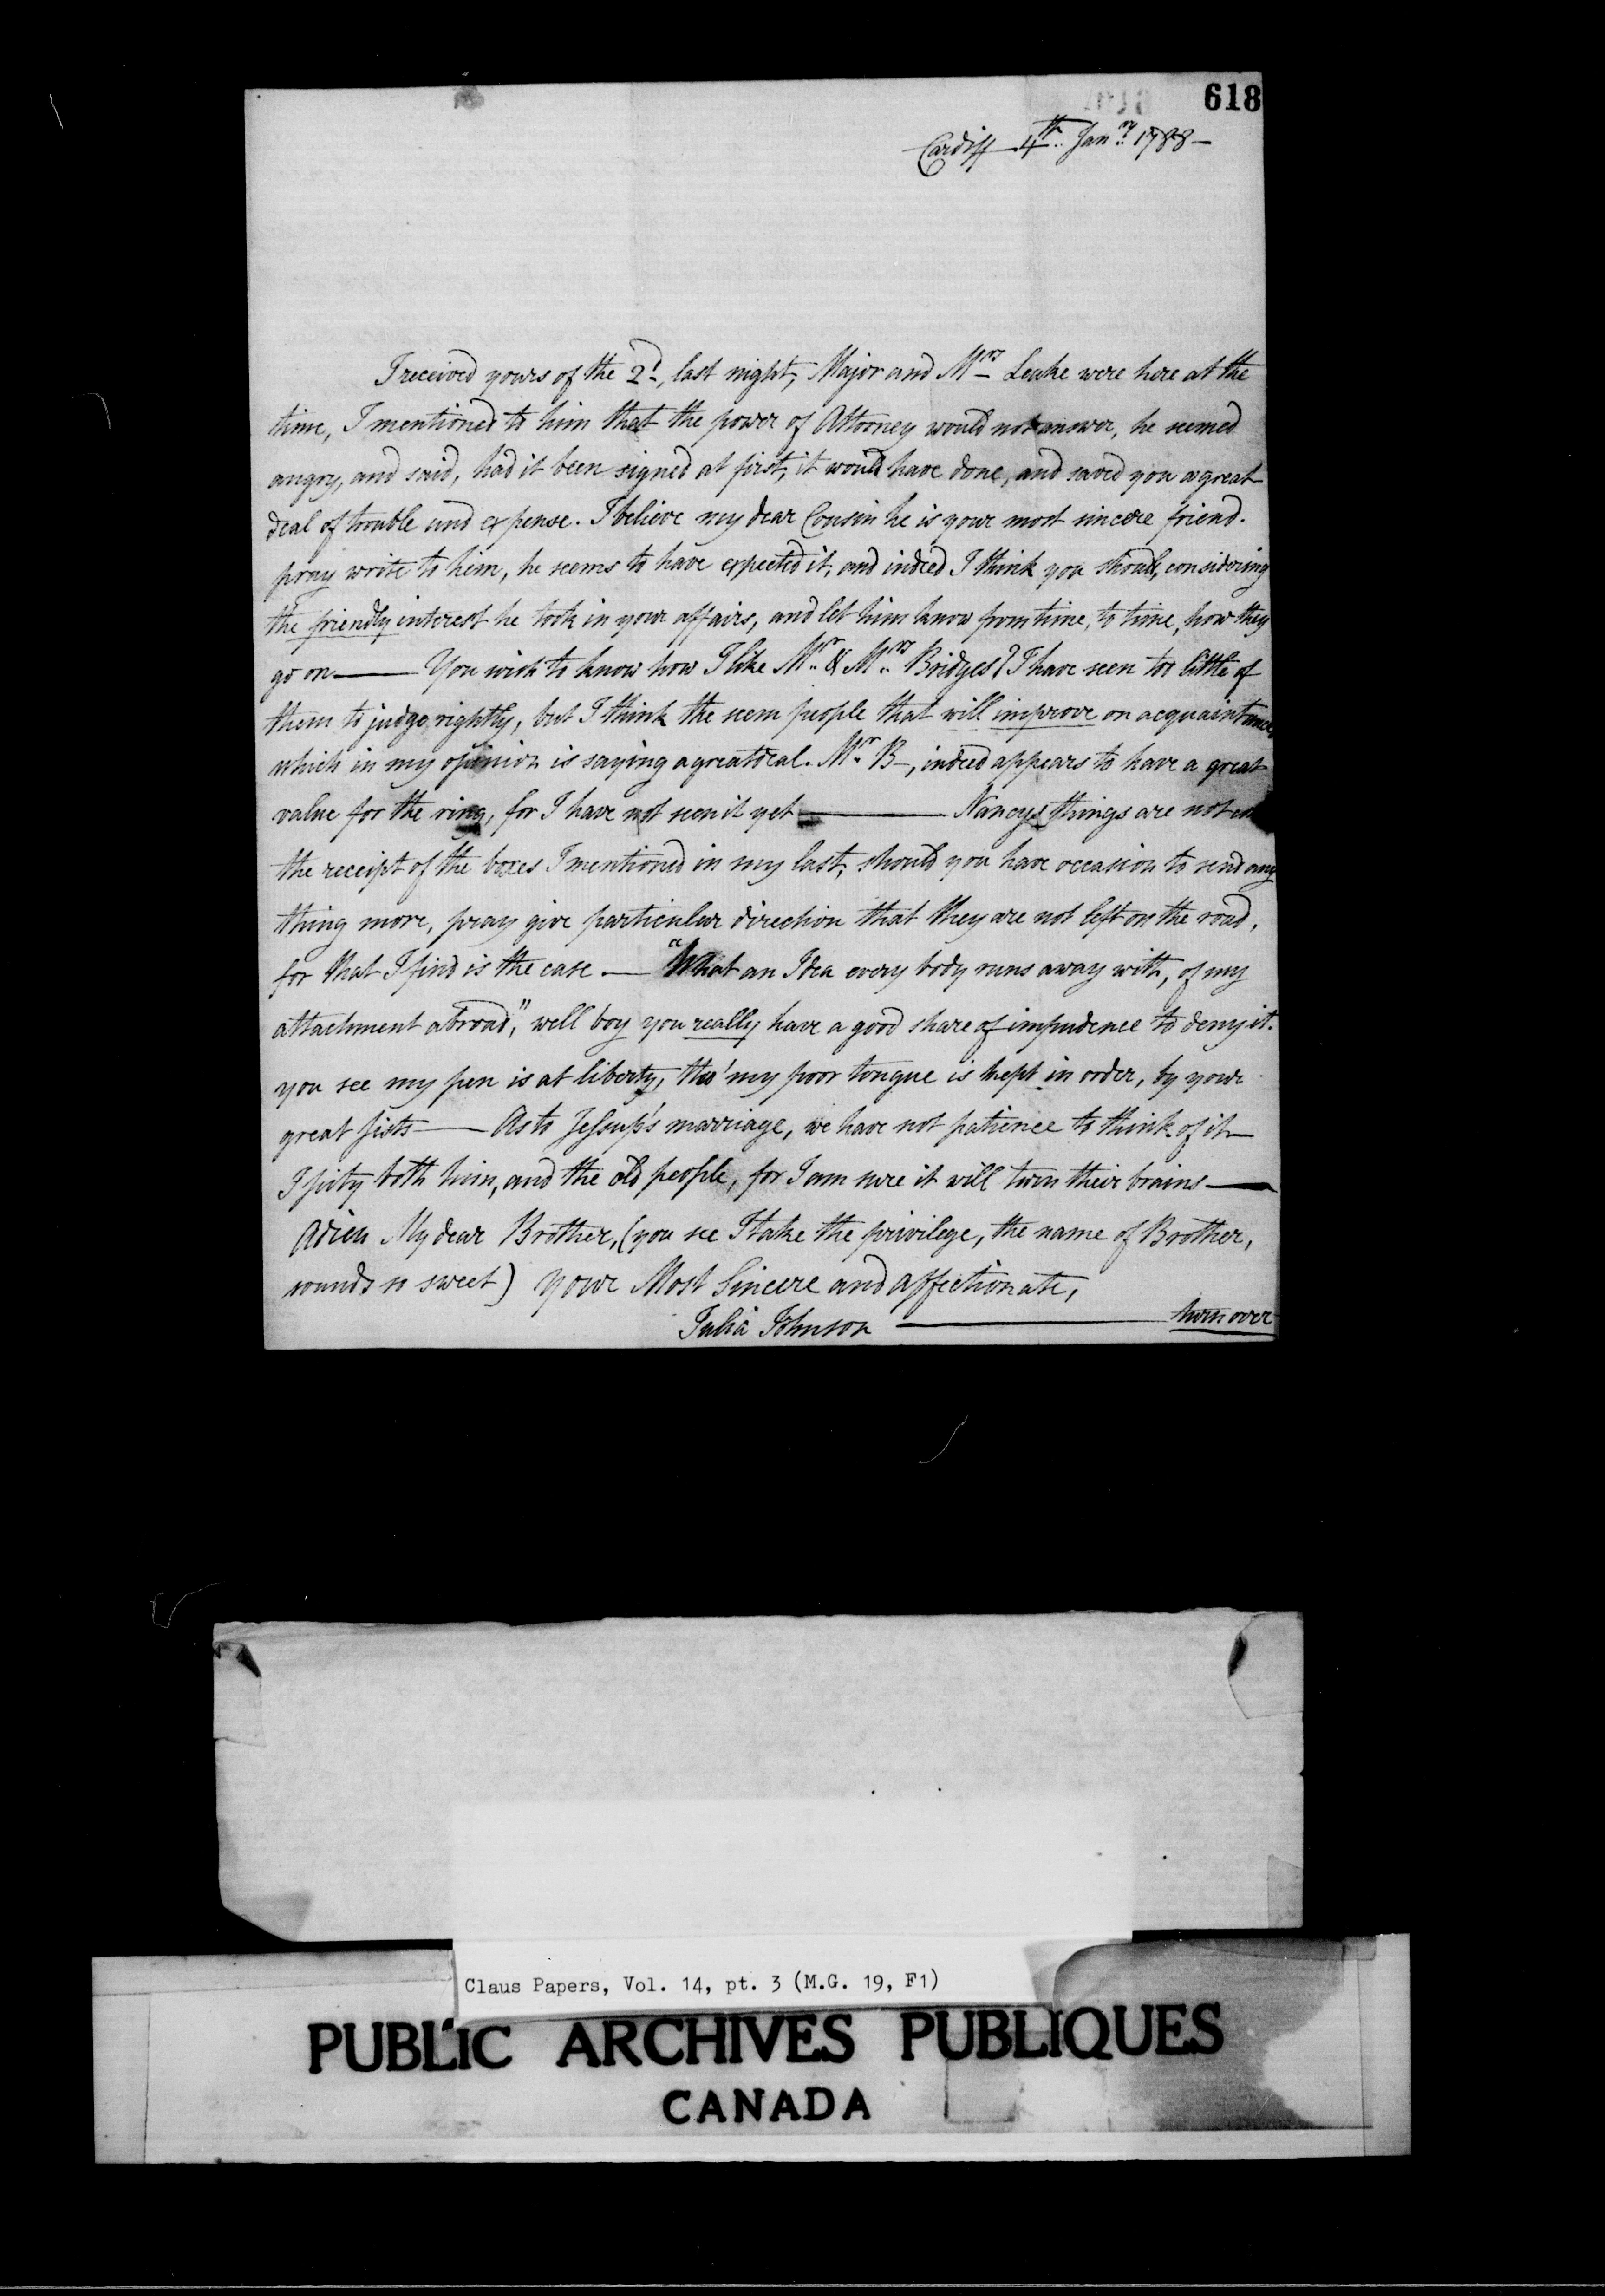 618
Cardiff 4th.. Janry.. 1788 –
I received yours of the 2d, last night, Major and Mrs Leake were here at the
time, I mentioned to him that the power of Attorney would not answer, he seemed
angry, and said, had it been signed at first, it would have done, and saved you a great
deal of trouble and expense. I believe my dear Cousin he is your most sincere friend.
pray write to him, he seems to have expected it, and indeed I think you should, considering
the friendly interest he took in your affairs, and let him know from time, to time, how they
go on — You wish to know how I like Mr.. & Mrs.. Bridges? I have seen too little of
them to judge rightly, but I think the seem people that will improve on acquaintance,
which in my opinion is saying a great deal. Mr.. B–, indeed appears to have a great
value for the ring, for I have not seen it yet — Nancys things are not
the receipt of the boxes I mentioned in my last, should you have occasion to send any
thing more, pray give particular direction that they are not left on the road,
for that I find is the case. — "What an Idea every body runs away with, of my
attachment abroad", well boy you really have a good share of impudence to deny it.
you see my pen is at liberty, tho' my poor tongue is kept in order, by your
great fists — As to Jessup's marriage, we have not patience to think of it –
I pity both him, and the old people, for I am sure it will turn their brains —
Adieu My dear Brother, (you see I take the privilege, the name of Brother,
sounds so sweet) your Most Sincere and affectionate,
Julia Johnson — turn over
Claus Papers, Vol. 14, pt. 3 (M.G. 19, F1)
PUBLIC ARCHIVES PUBLIQUES
CANADA